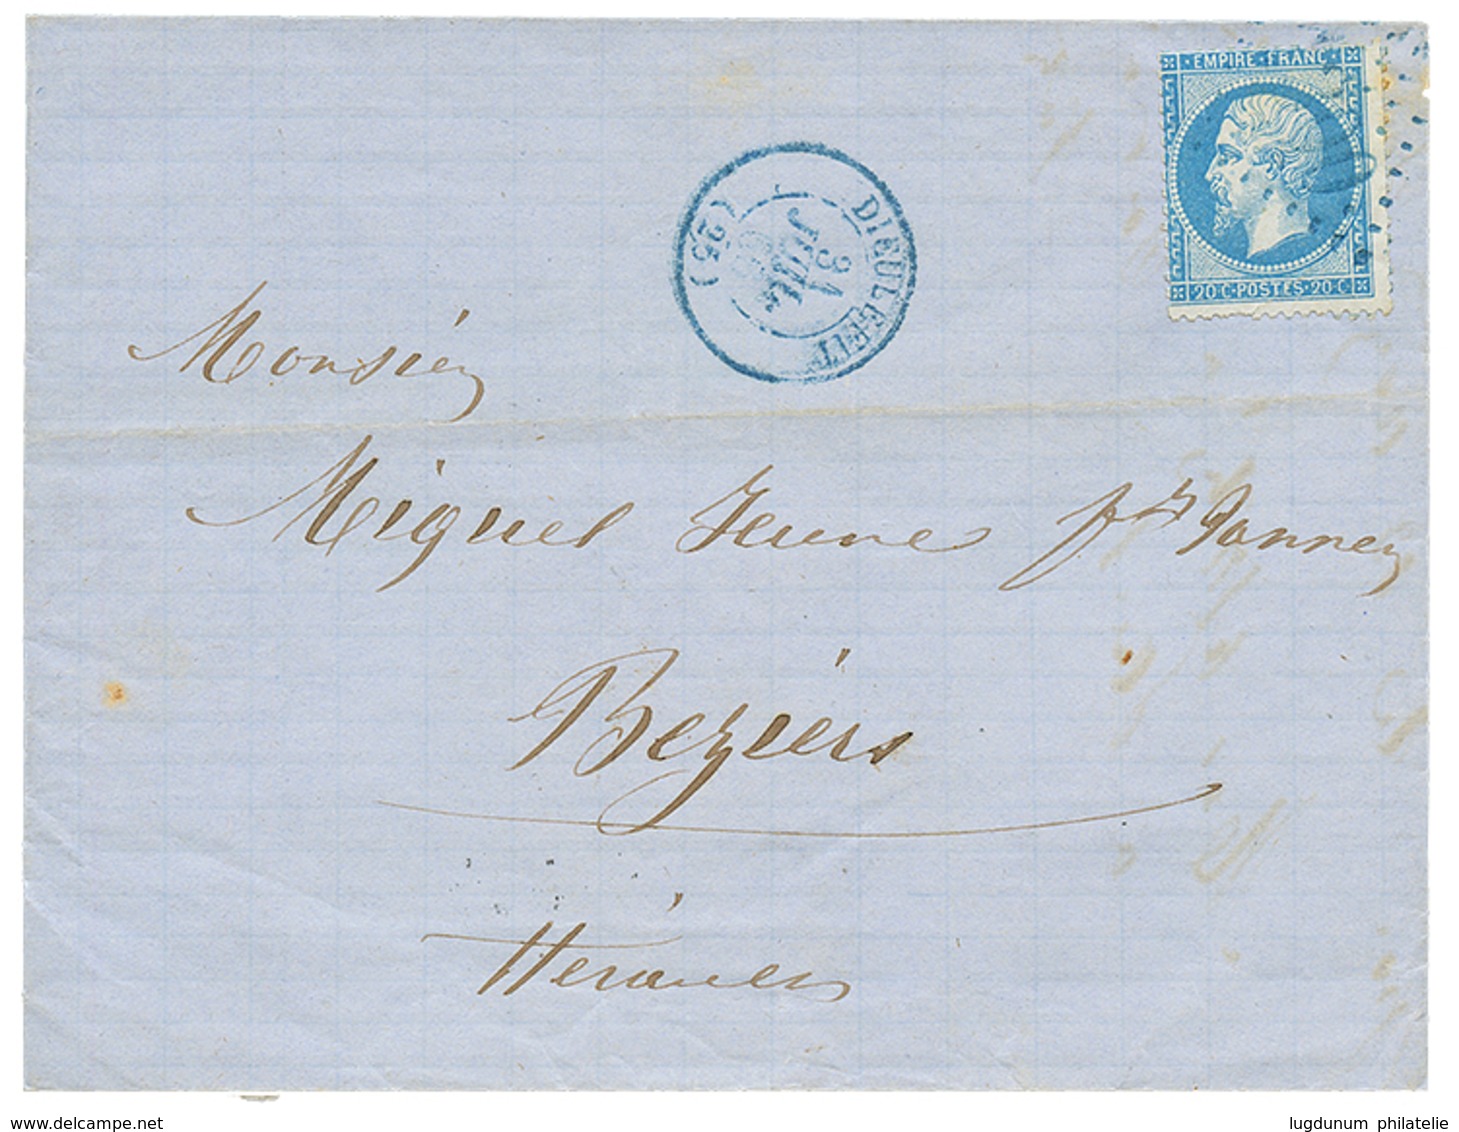 EMPIRE FRANC
20 C POSTES 20 C
DIEULEFIT
31
JUIL
(25)
Monsieur
Miguel Jeune
Beziers
www.delcampe.net
lugdunum philatelie